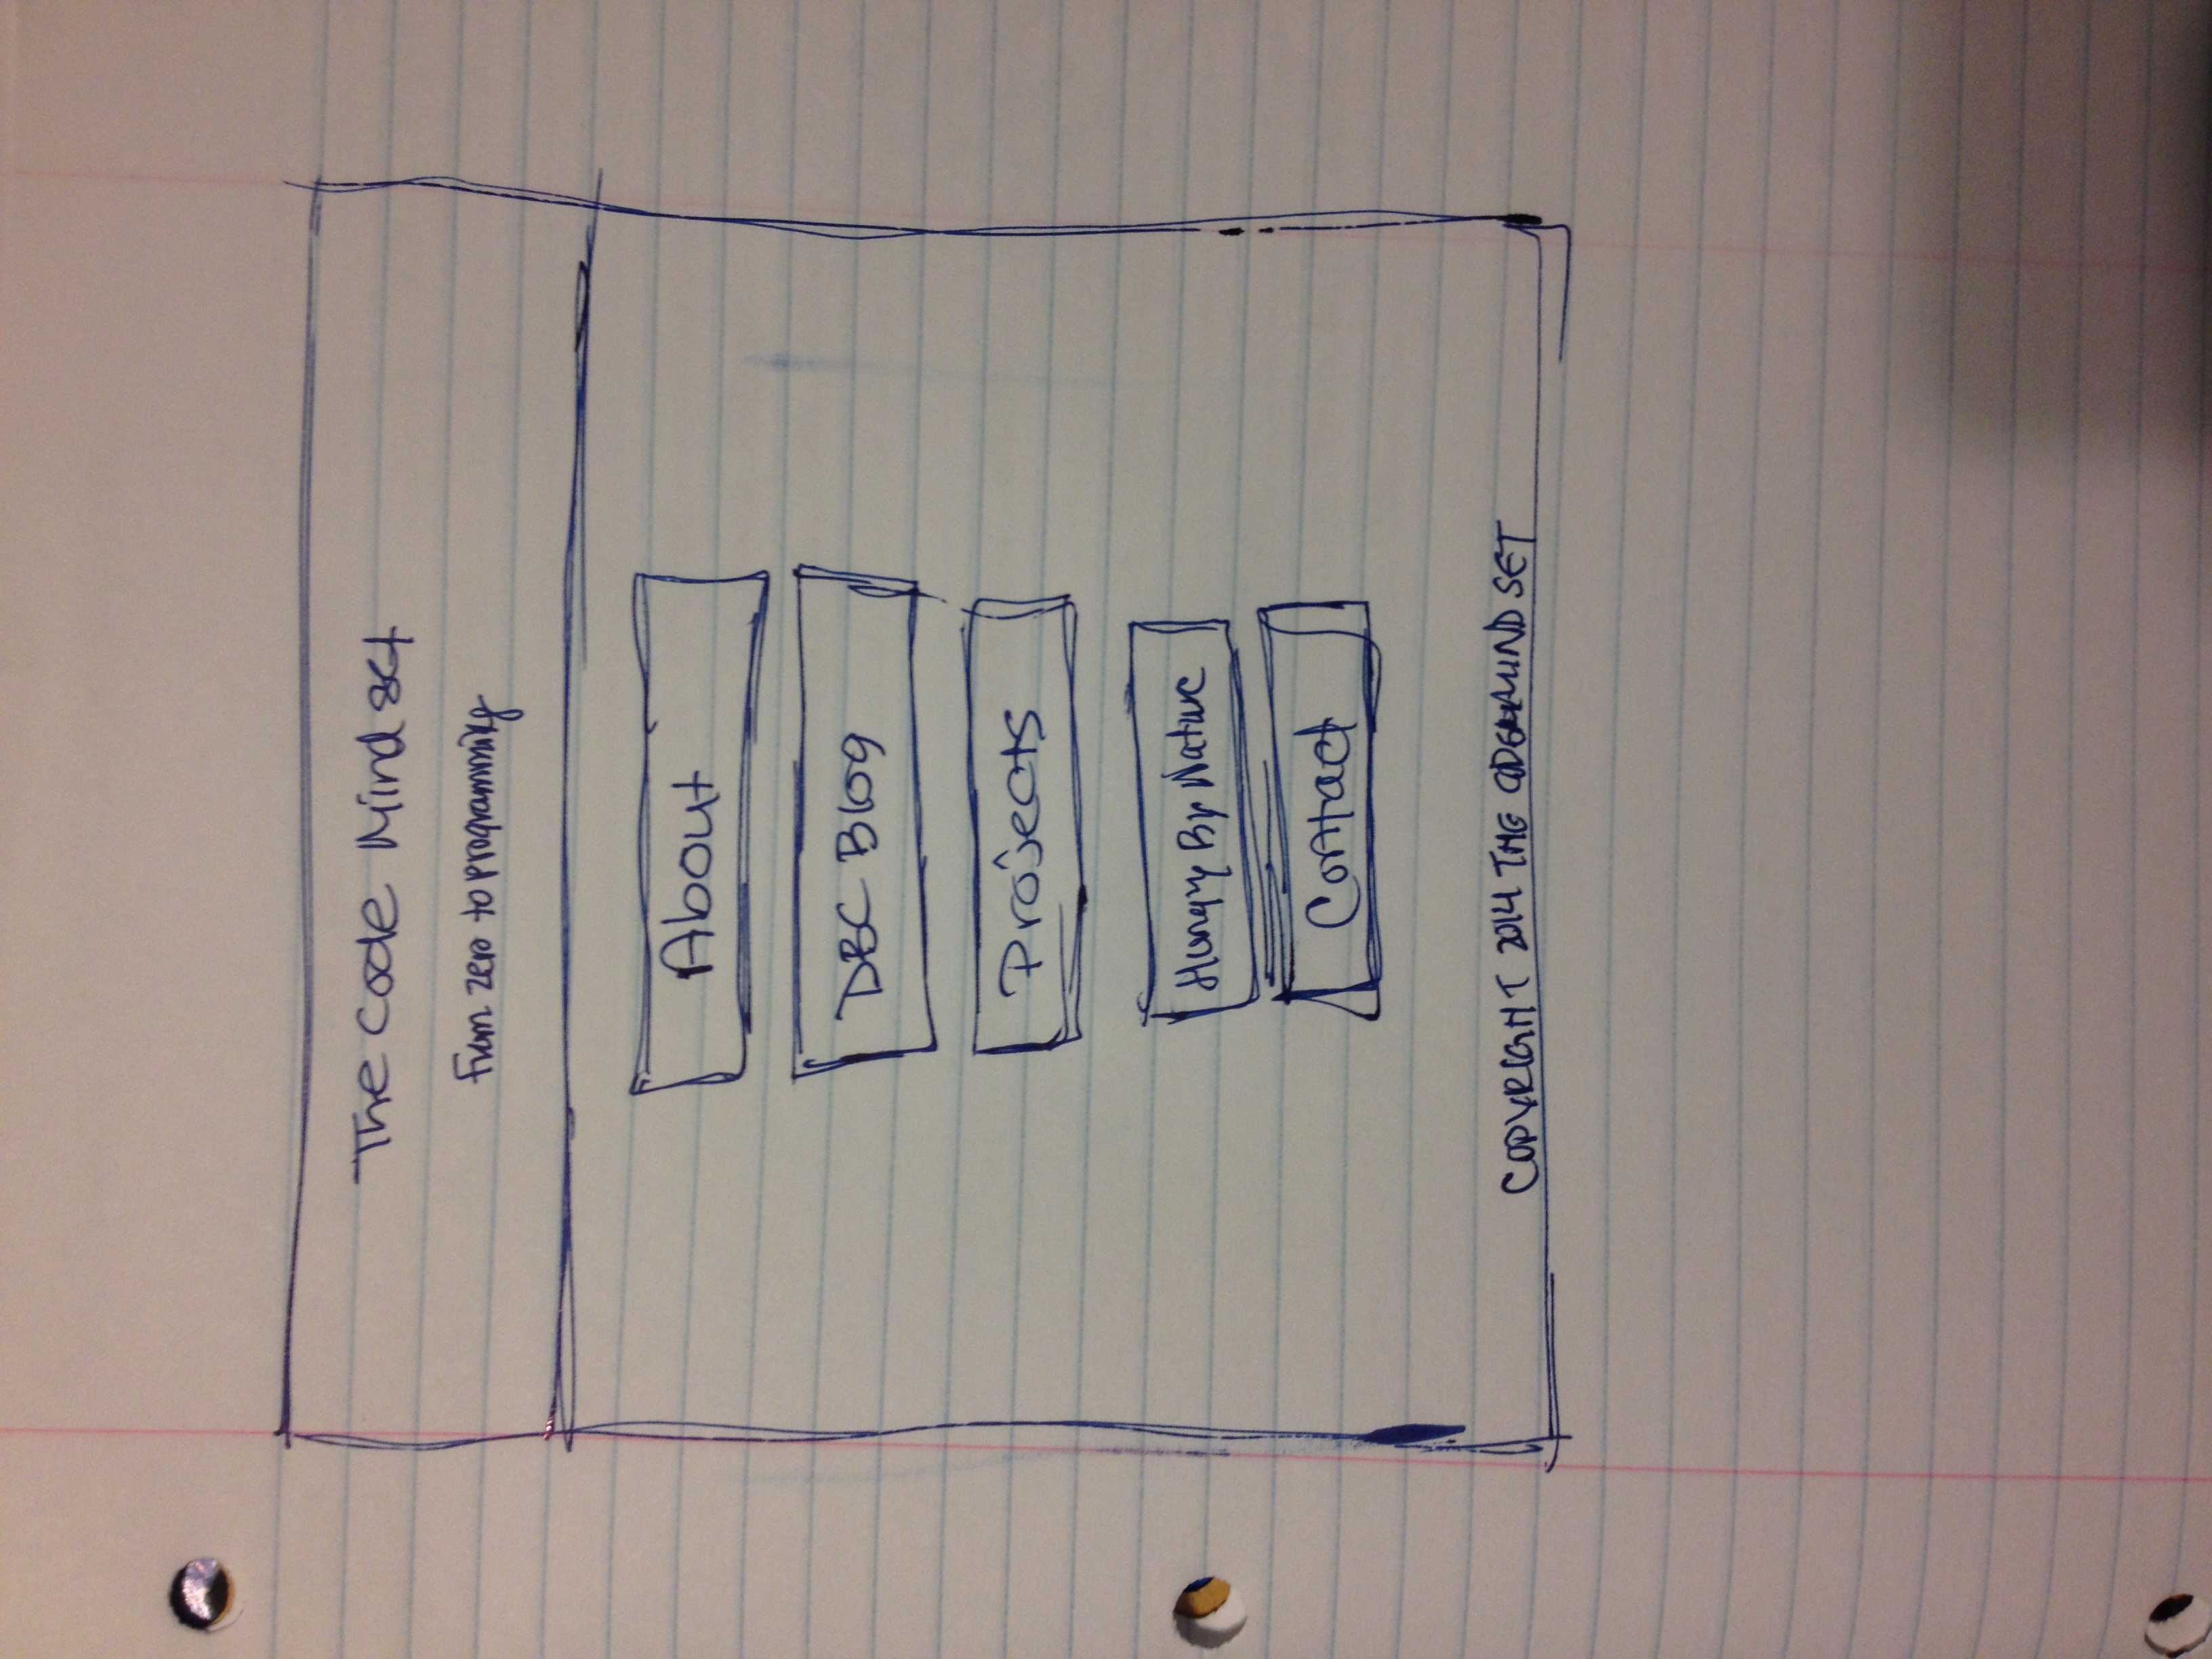 The Code Mindset
From zero to programming
About
DBC Blog
Projects
Hungry By Nature
Contact
COPYRIGHT 2014 THE CODE MIND SET